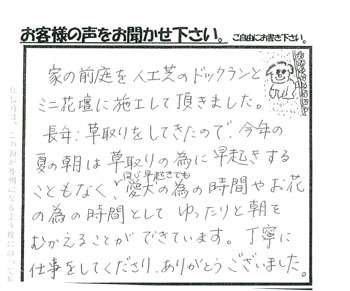 お客様の声をお聞かせ下さい。ご自由にお書き下さい。
家の前庭を人工芝のドックランと
ミニ花壇に施工して頂きました。
長年、草取りをしてきたので、今年の
夏の朝は草取りの為に早起きする
こともなく、早起きでも
愛犬の為の時間やお花
の為の時間として ゆったりと朝を
むかえることができています。丁寧に
仕事をしてくださり、ありがとうございました。